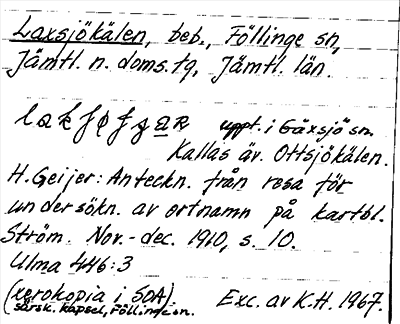 Laxsjökälen, beb., Föllinge sn,
Jämtl. n. doms.tg, Jämtl. län.
uppt. i Gåxsjö sn.
Kallas äv. Ottsjökälen.
H. Geijer: Anteckn. från resa för
undersökn. av ortnamn på kartbl.
Ström. Nov.-dec. 1910, s. 10.
Ulma 446:3
(xerokopia i SOA).
särsk. kapsel, Föllinge sn.
Exc. av K.H. 1967.